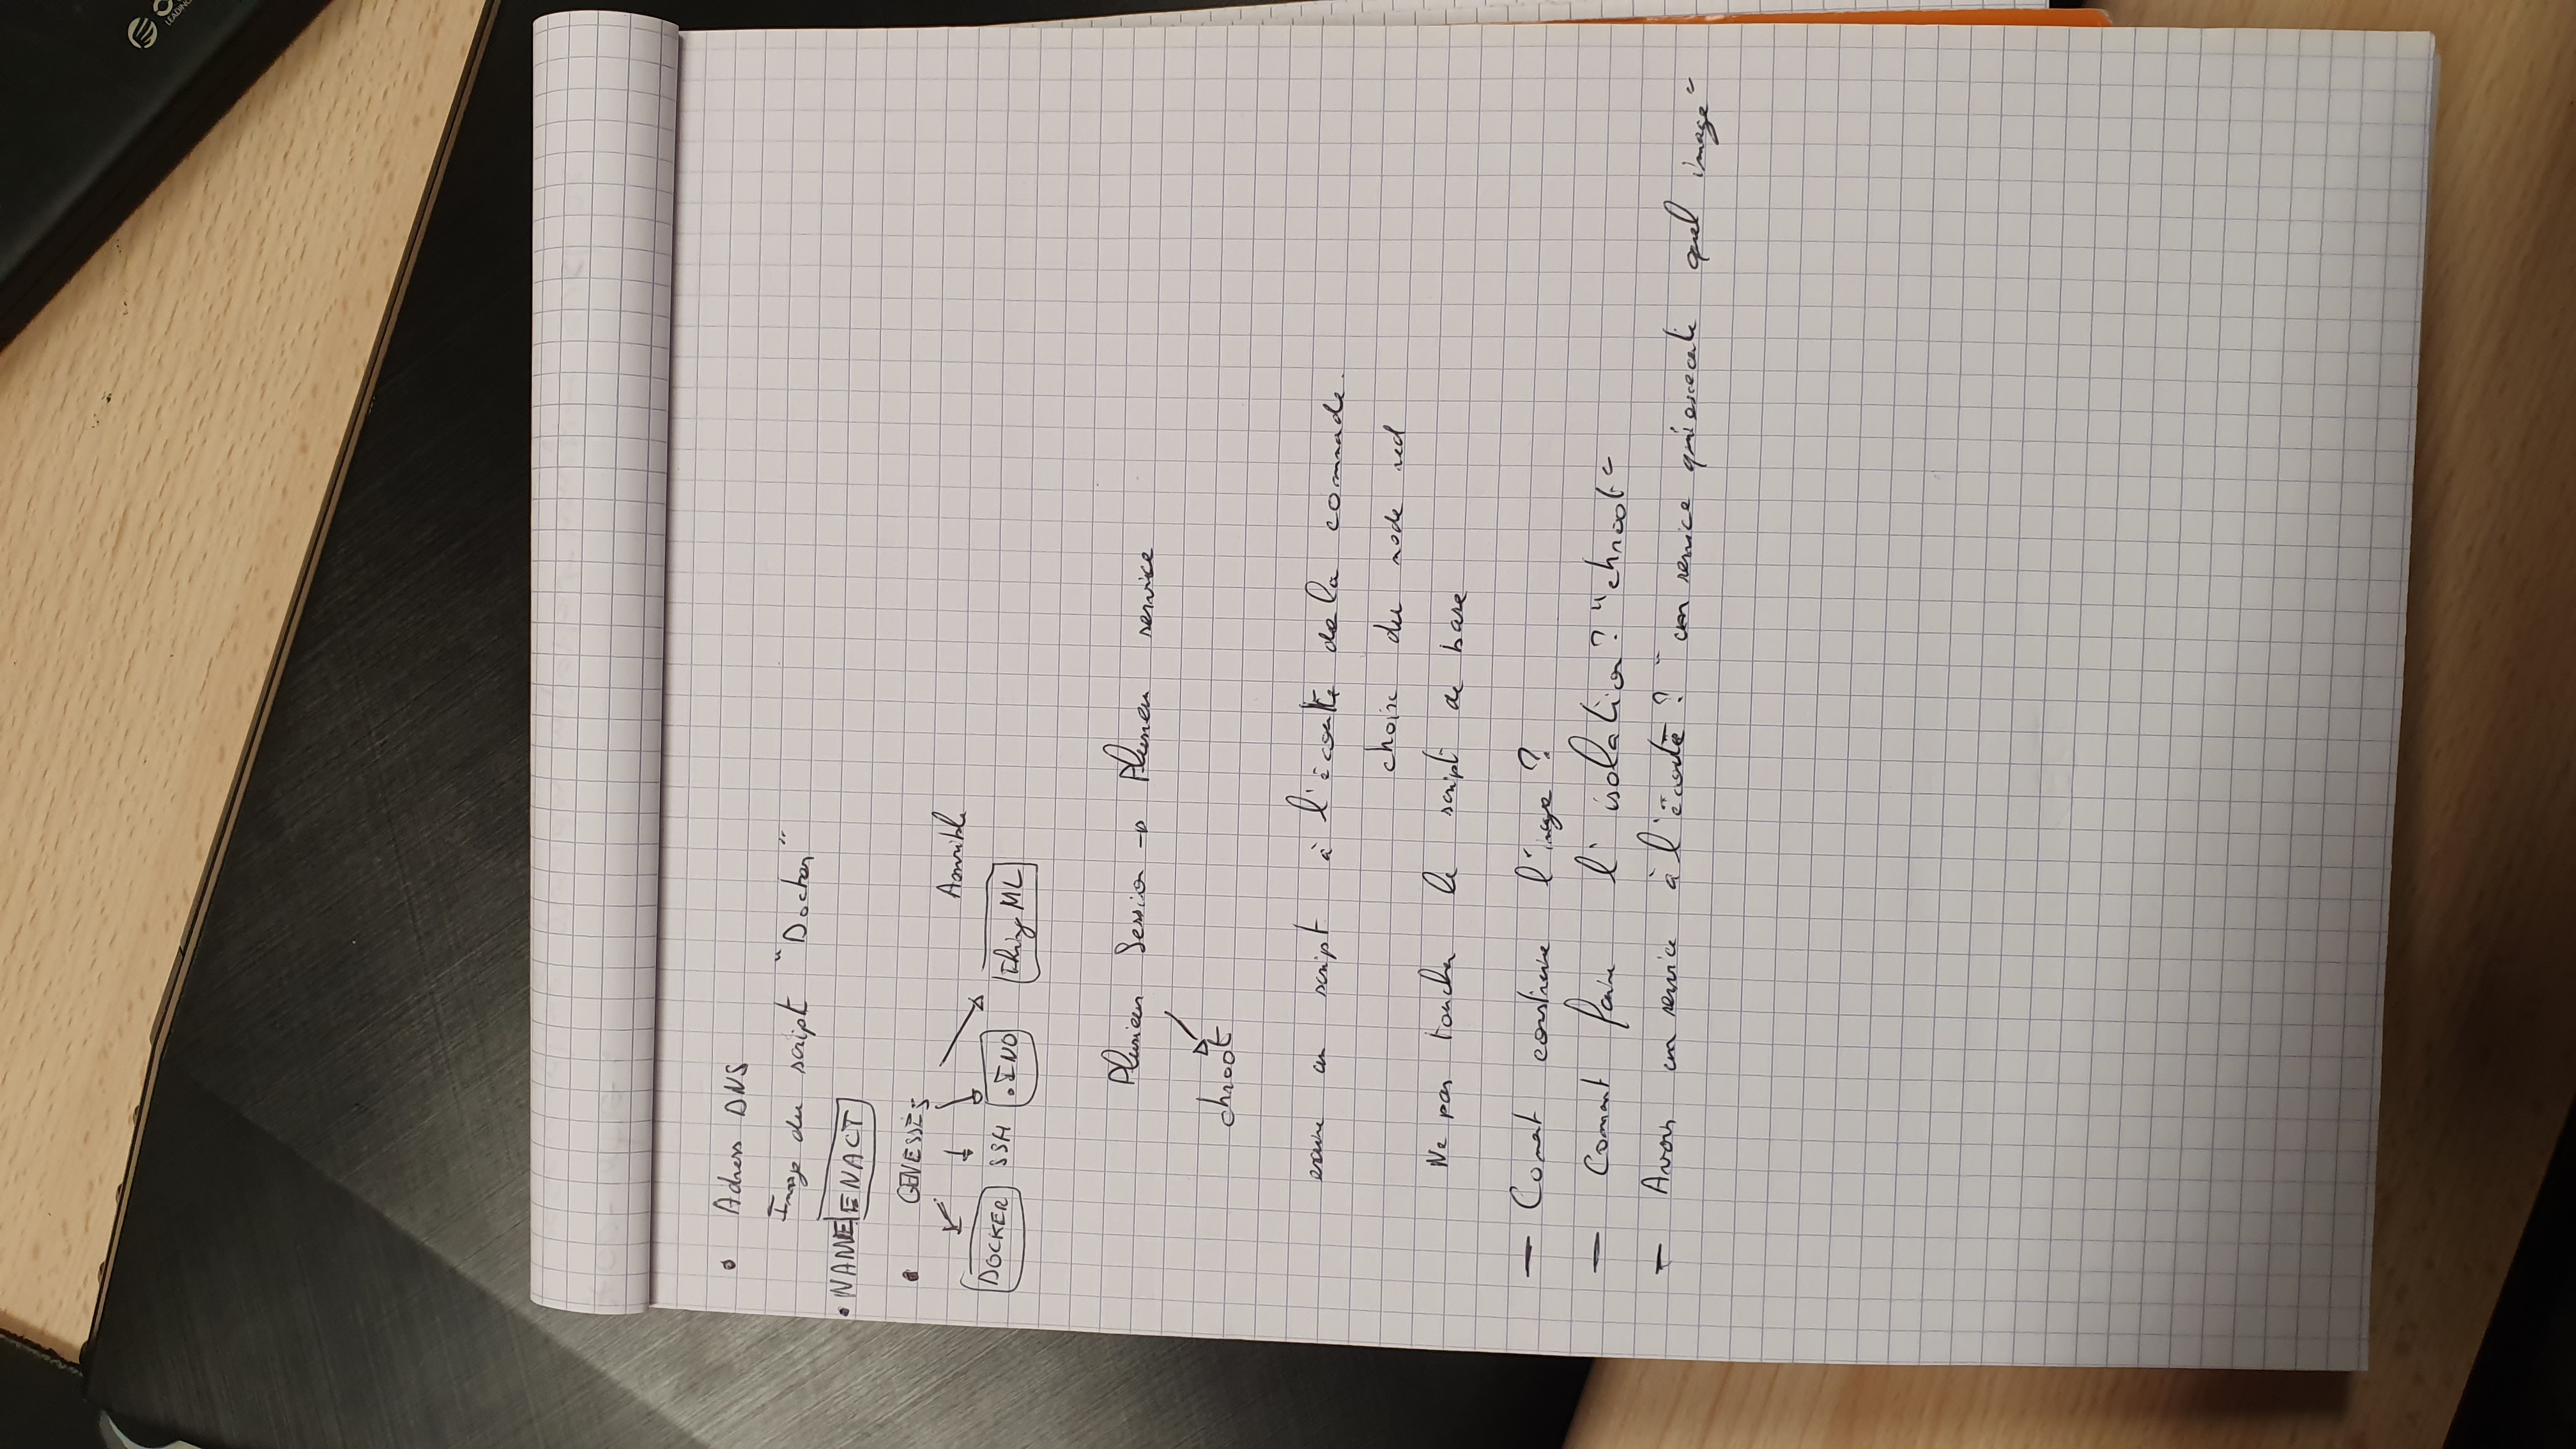 Adress DNS
Image du script "Docker"
NAME ENACT
GENESSIS
Ansible
DOCKER SSH .INO ThingML
Plusieur Session → Plusieur service
chroot
ecrire un script à l'écoute de la commade.
choix du node red
Ne pas toucher le script de base
— Coment construire l'image ?
— Comment faire l'isolation ? "chroot"
— Avoir un service à l'écoute ? "un service qui execute quel image"
LEADING